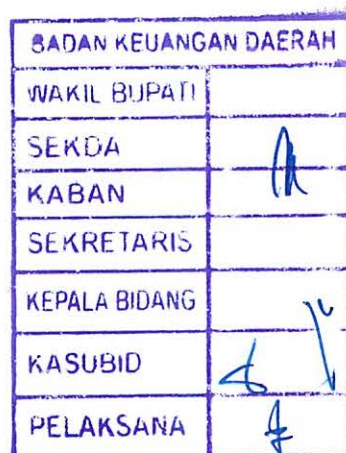 BADAN KEUANGAN DAERAH
WAKIL BUPATI
SEKDA
KABAN
SEKRETARIS
KEPALA BIDANG
KASUBID
PELAKSANA